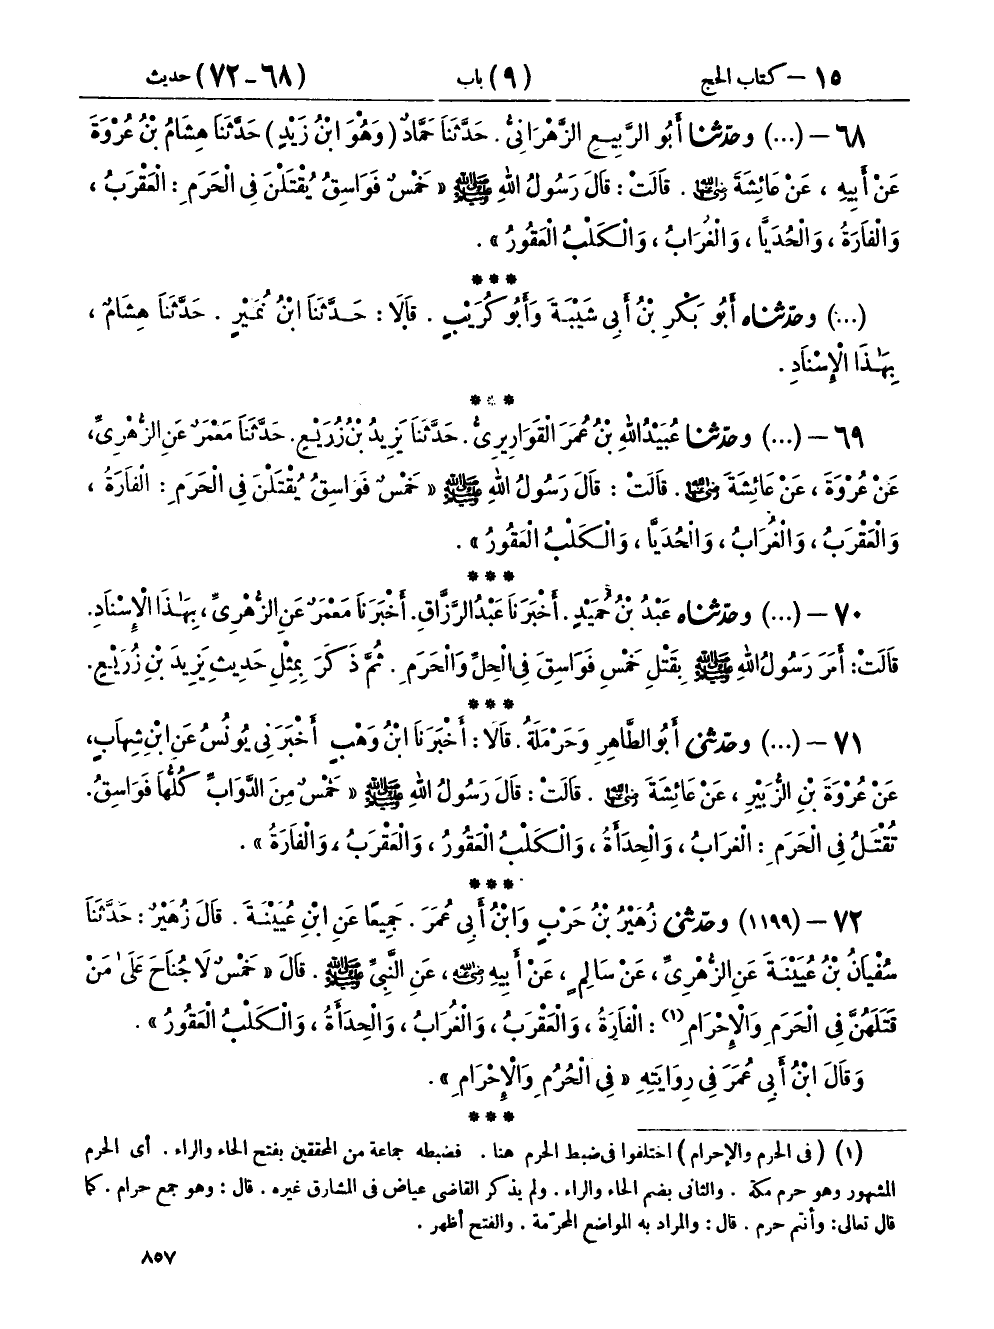 ١٥ – كتاب الحج (٩) باب (٦٨ - ٧٢) حديث
٦٨ – (...) وحدّثنا أَبُو الرَّبِيعِ الزَّهْرَانِىُّ . حَدَّثَنَا حَمَّادٌ (وَهُوَ ابْنُ زَيْدٍ) حَدَّثَنَا هِشَامُ بْنُ عُرْوَةَ
عَنْ أَبِيهِ ، عَنْ عَائِشَةَ رضى الله عنها . قَالَتْ : قَالَ رَسُولُ اللهِ ﷺ « خَمْسٌ فَوَاسِقُ يُقْتَلْنَ فِى الْحَرَمِ : الْعَقْرَبُ ،
وَالْفَارَةُ ، وَالْحُدَيَّا ، وَالْغُرَابُ ، وَالْكَلْبُ الْعَقُورُ » .
***
(...) وحدّثناه أَبُو بَكْرِ بْنُ أَبِى شَيْبَةَ وَأَبُو كُرَيْبٍ . قَالَا : حَدَّثَنَا ابْنُ نُمَيْرٍ . حَدَّثَنَا هِشَامٌ ،
بِهَٰذَا الْإِسْنَادِ .
***
٦٩ – (...) وحدّثنا عُبَيْدُ اللهِ بْنُ عُمَرَ الْقَوَارِيرِىُّ . حَدَّثَنَا يَزِيدُ بْنُ زُرَيْعٍ . حَدَّثَنَا مَعْمَرٌ عَنِ الزُّهْرِىِّ ،
عَنْ عُرْوَةَ ، عَنْ عَائِشَةَ رضى الله عنها . قَالَتْ : قَالَ رَسُولُ اللهِ ﷺ « خَمْسٌ فَوَاسِقُ يُقْتَلْنَ فِى الْحَرَمِ : الْفَارَةُ ،
وَالْعَقْرَبُ ، وَالْغُرَابُ ، وَالْحُدَيَّا ، وَالْكَلْبُ الْعَقُورُ » .
***
٧٠ – (...) وحدّثناه عَبْدُ بْنُ حُمَيْدٍ . أَخْبَرَنَا عَبْدُ الرَّزَّاقِ . أَخْبَرَنَا مَعْمَرٌ عَنِ الزُّهْرِىِّ ، بِهَٰذَا الْإِسْنَادِ .
قَالَتْ : أَمَرَ رَسُولُ اللهِ ﷺ بِقَتْلِ خَمْسِ فَوَاسِقَ فِى الْحِلِّ وَالْحَرَمِ . ثُمَّ ذَكَرَ بِمِثْلِ حَدِيثِ يَزِيدَ بْنِ زُرَيْعٍ .
***
٧١ – (...) وحدّثنى أَبُو الطَّاهِرِ وَحَرْمَلَةُ . قَالَا : أَخْبَرَنَا ابْنُ وَهْبٍ أَخْبَرَنِى يُونُسُ عَنِ ابْنِ شِهَابٍ ،
عَنْ عُرْوَةَ بْنِ الزُّبَيْرِ ، عَنْ عَائِشَةَ رضى الله عنها . قَالَتْ : قَالَ رَسُولُ اللهِ ﷺ « خَمْسٌ مِنَ الدَّوَابِّ كُلُّهَا فَوَاسِقُ .
تُقْتَلُ فِى الْحَرَمِ : الْغُرَابُ ، وَالْحِدَأَةُ ، وَالْكَلْبُ الْعَقُورُ ، وَالْعَقْرَبُ ، وَالْفَارَةُ » .
***
٧٢ – (١١٩٩) وحدّثنى زُهَيْرُ بْنُ حَرْبٍ وَابْنُ أَبِى عُمَرَ . جَمِيعًا عَنِ ابْنِ عُيَيْنَةَ . قَالَ زُهَيْرٌ : حَدَّثَنَا
سُفْيَانُ بْنُ عُيَيْنَةَ عَنِ الزُّهْرِىِّ ، عَنْ سَالِمٍ ، عَنْ أَبِيهِ رضى الله عنه ، عَنِ النَّبِىِّ ﷺ . قَالَ « خَمْسٌ لَا جُنَاحَ عَلَىٰ مَنْ
قَتَلَهُنَّ فِى الْحَرَمِ وَالْإِحْرَامِ (١) : الْفَارَةُ ، وَالْعَقْرَبُ ، وَالْغُرَابُ ، وَالْحِدَأَةُ ، وَالْكَلْبُ الْعَقُورُ » .
وَقَالَ ابْنُ أَبِى عُمَرَ فِى رِوَايَتِهِ « فِى الْحُرُمِ وَالْإِحْرَامِ » .
***
(١) (فى الحرم والإحرام) اختلفوا فى ضبط الحرم هنا . فضبطه جماعة من المحققين بفتح الحاء والراء . أى الحرم
المشهور وهو حرم مكة . والثانى بضم الحاء والراء . ولم يذكر القاضى عياض فى المشارق غيره . قال : وهو جمع حرام . كما
قال تعالى : وأنتم حرم . قال : والمراد به المواضع المحرّمة . والفتح أظهر .
٨٥٧